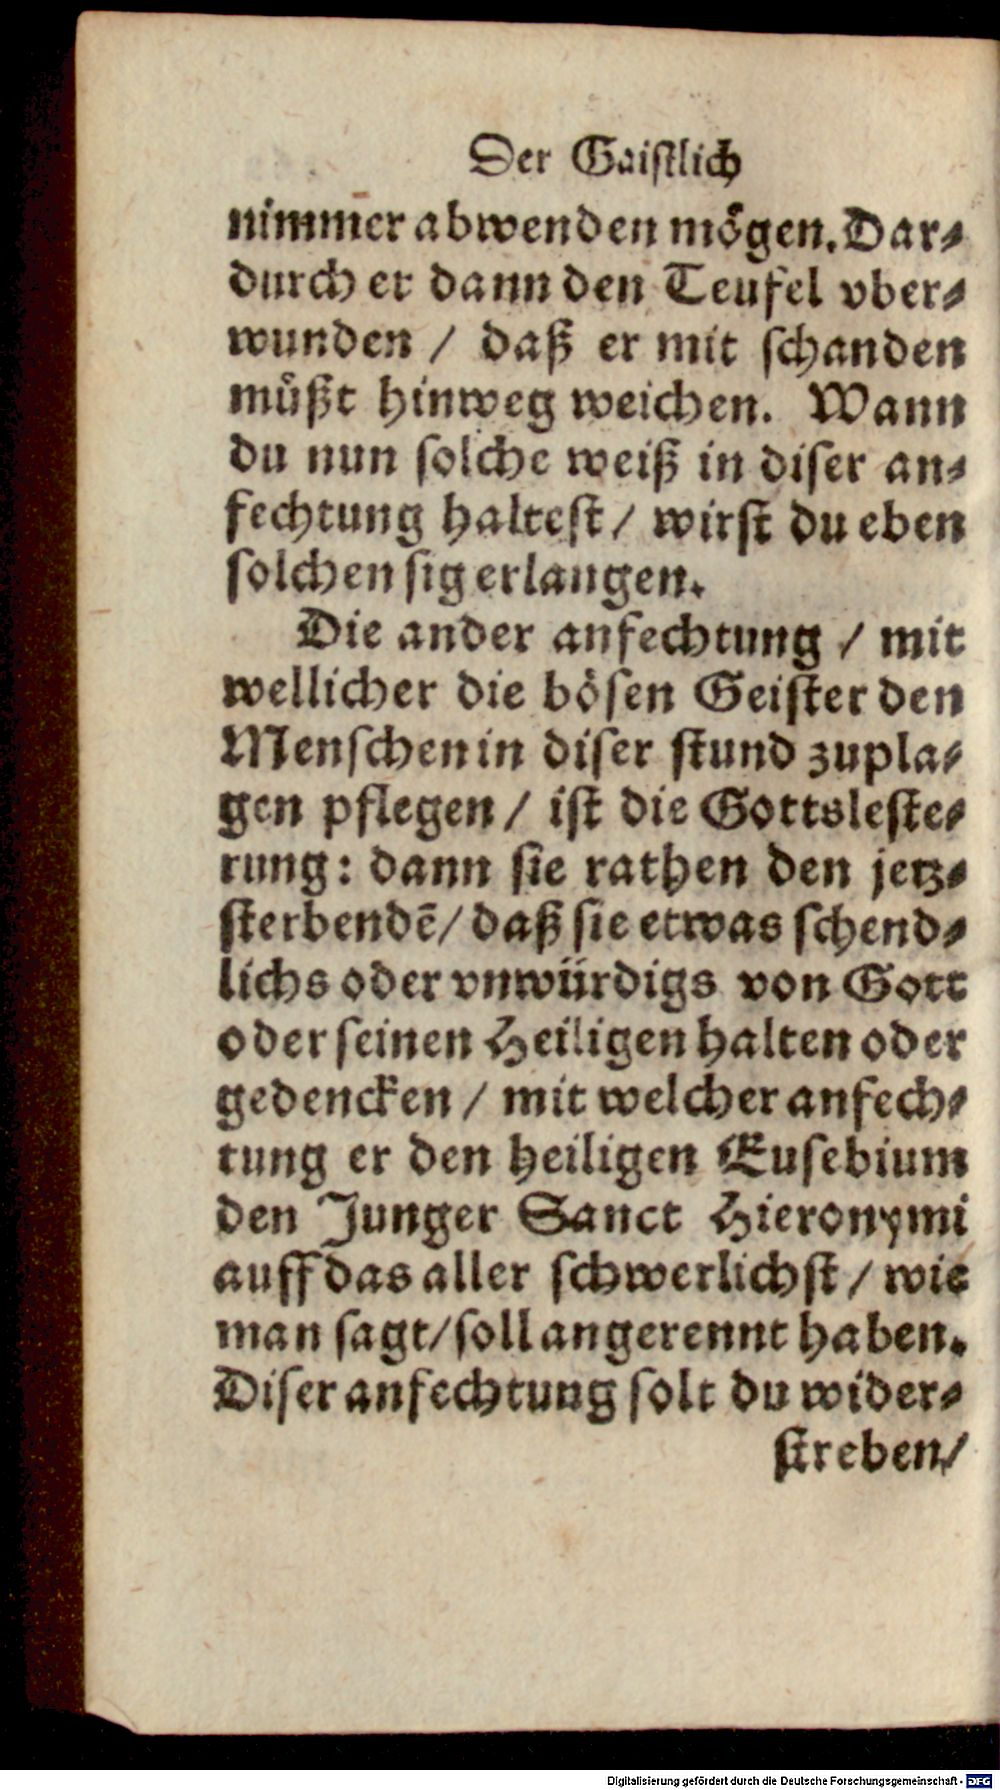 Der Gaistlich
nimmer abwenden mögen. Dar⸗
durch er dann den Teufel vber⸗
wunden / daß er mit schanden
müßt hinweg weichen. Wann
du nun solche weiß in diser an⸗
fechtung haltest / wirst du eben
solchen sig erlangen.
Die ander anfechtung / mit
wellicher die bösen Geister den
Menschen in diser stund zupla⸗
gen pflegen / ist die Gottsleste⸗
rung: dann sie rathen den jetz⸗
sterbendē / daß sie etwas schend⸗
lichs oder vnwürdigs von Gott
oder seinen Heiligen halten oder
gedencken / mit welcher anfech⸗
tung er den heiligen Eusebium
den Junger Sanct Hieronymi
auff das aller schwerlichst / wie
man sagt / soll angerennt haben.
Diser anfechtung solt du wider⸗
streben /
Digitalisierung gefördert durch die Deutsche Forschungsgemeinschaft - DFG